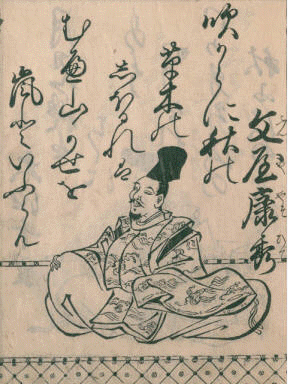 文屋康秀
吹からに秋の
草木の
しほるれは
むへ山かせを
嵐といふらん